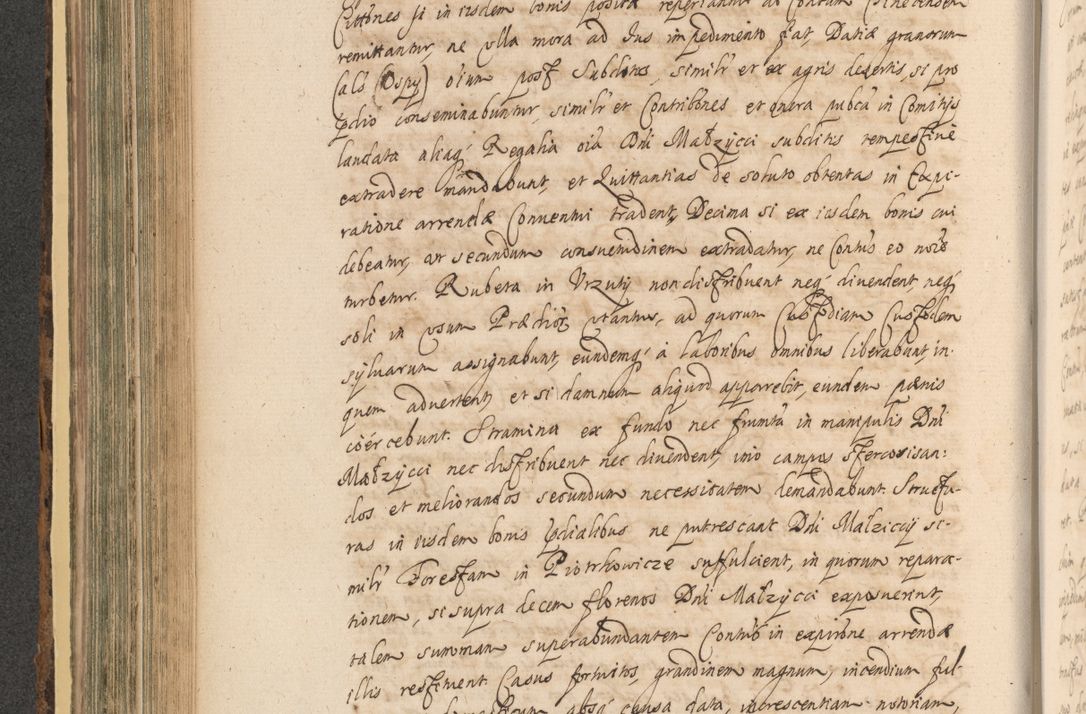 Cittones si in iisdem bonis posita reperiantur ad Contum
remittantur, ne ulla mora ad Jus impedimento fiat, Datiæ granorum
(als Ospy) oium post Subditos, similr et ex agris desertis, si pro
pdio conseminabuntur, similr et Contribones et onera pubca in Comitijs
laudata aliaq́ Regalia oia Dni Małzycci subditis tempestive
extradere mandabunt, et Quittantias de soluto obtentas in Expi-
ratione arrendæ Conventui tradent, Decima si ex iisdem bonis cui
debeatur, ut secundum consvetudinem extradatur, ne Contus eo noie
turbetur. Rubeta in Vrzuty non distribuent neq́ divendent neq́
soli in usum Prædior utantur, ad quorum Custodiam Custodem
sylvarum assignabunt, eundemq́ à laboribus omnibus liberabunt in
quem advertent, et si damnum aliquod apparebit, eundem pænis
coërcebunt. Stramina ex fundo nec frumta in manipulis Dni
Małzycci nec distribuent nec divendent, imo campos stercorisan:
dos et meliorandos secundum necessitatem demandabunt. Structu-
ras in iisdem bonis pdialibus ne putrescant Dni Malziccij si-
milr Forestam in Piotrkowicze suffulcient, in quorum repara-
tionem, si supra decem florenos Dni Małzycci exposuerint,
talem summam superabundantem Contus in expirone arrendæ
illis restituent. Casus fortuitos, grandinem magnum, incendium ful-
absq́ causa data, increscentiam notoriam,